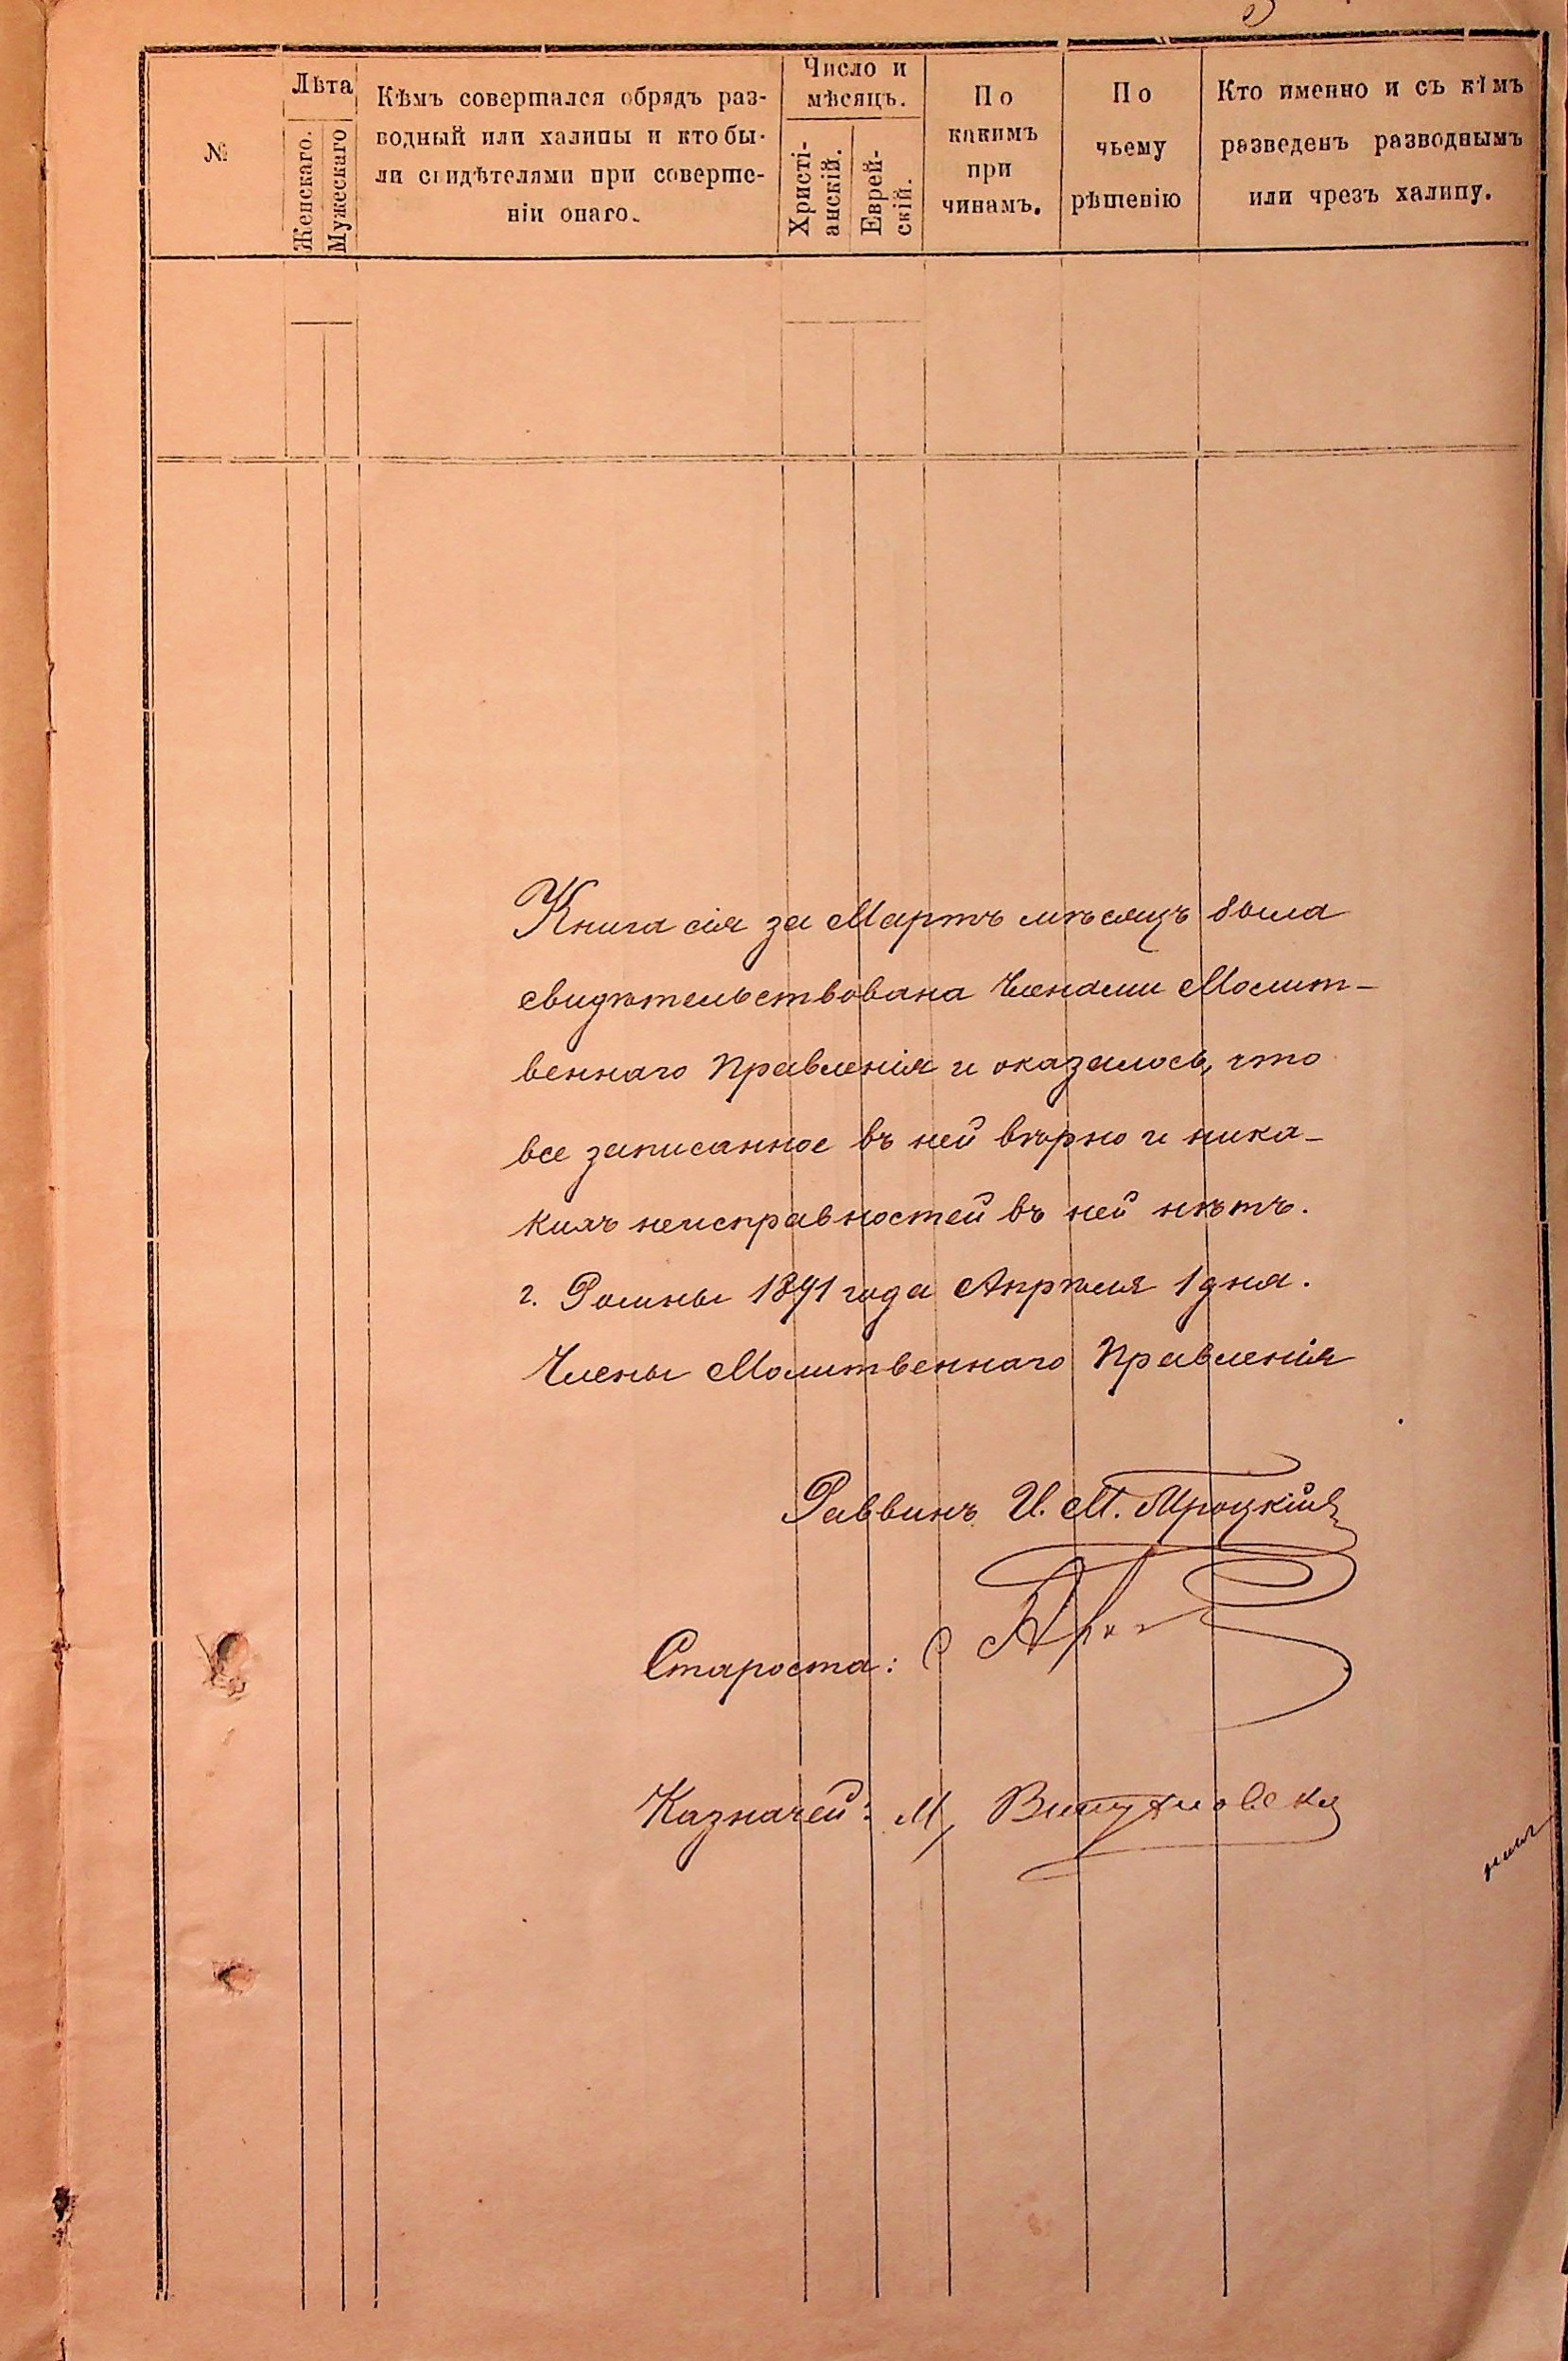 №
Лѣта
Женскаго.
Мужескаго
Кѣмъ совершался обрядъ раз-
водный или халицы и кто бы-
ли свидѣтелями при соверше-
ніи онаго.
Число и
мѣсяцъ.
Христі-
анскій.
Еврей-
скій.
По
какимъ
при
чинамъ.
По
чьему
рѣшенію
Кто именно и съ кѣмъ
разведенъ разводнымъ
или чрезъ халицу.
Книга сія за Мартъ мѣсяцъ была
свидѣтельствована Членами Молит-
веннаго Правленія и оказалось, что
все записанное въ ней вѣрно и ника-
кихъ неисправностей въ ней нѣтъ.
г. Ромны 1891 года Апрѣля 1 дня.
Члены Молитвеннаго Правленія
Раввинъ И. М. Троцкій
Староста:
Казначей: М.